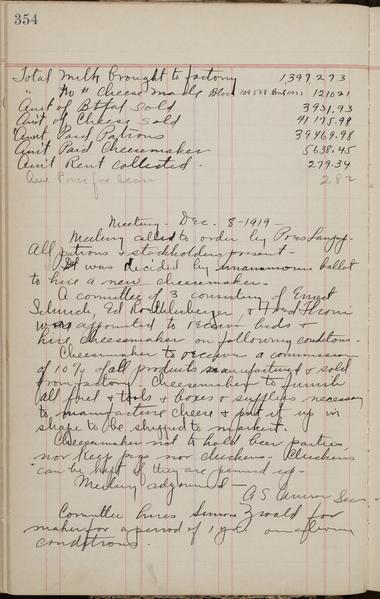 354
Total Milk brought to factory 1,397273
" No # Cheese made Block 121021
Am't of Btfat Sold 3931.93
Am't of Cheese Sold 41175.98
Am't Paid Patrons 39469.98
Am't Paid Cheesemaker 5638.45
Am't Rent collected - 279.34
Ave Price for Season 2.82
Meeting - Dec. 8 - 1919 -
Meeting called to order by Pres
All patrons & stockholders present -
It was decided by unanimous ballot
to hire a new cheesemaker.
A committee of 3 consisting of Ernest
Schurch, Ed &
was appointed to receive bids &
hire cheesemaker on following conditions -
Cheesemaker to receive a commission
of 10% of all products manufactured & sold
from factory - Cheesemaker to furnish
all fuel & tools & boxes & supplies necessary
to manufacture cheese & put it up in
shape to be shipped to market.
Cheesemaker not to hold beer parties
nor keep pigs nor chickens - Chickens
can be kept if they are penned up -
Meeting adjourned -
A.S. Sec
Committee hires Simon Zwald for
maker for a period of 1 yr. on above
conditions.